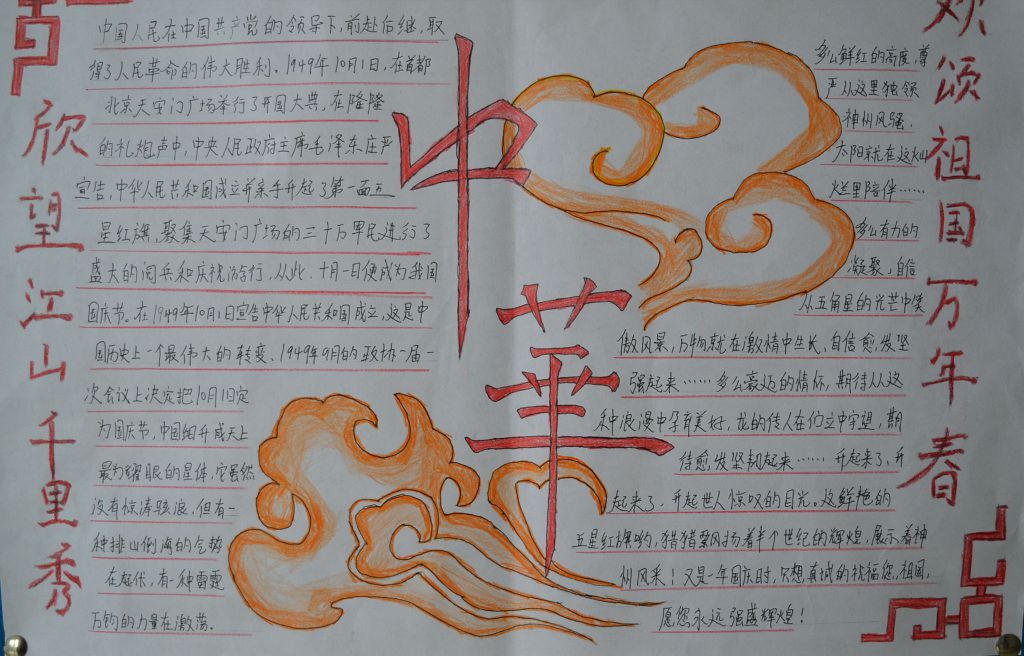 欣望江山千里秀
中国人民在中国共产党的领导下,前赴后继,取
得了人民革命的伟大胜利。1949年10月1日,在首都
北京天安门广场举行了开国大典,在隆隆
的礼炮声中,中央人民政府主席毛泽东庄严
宣告,中华人民共和国成立并亲手升起了第一面五
星红旗,聚集天安门广场的三十万军民进行了
盛大的阅兵和庆祝游行,从此,十月一日便成为我国
国庆节。在1949年10月1日宣告中华人民共和国成立,这是中
国历史上一个最伟大的转变、1949年9月的政协一届一
次会议上决定把10月1日定
为国庆节,中国组升成天上
最为耀眼的星体,它虽然
没有惊涛骇浪,但有一
种排山倒海的气势
在起伏,有一种雷霆
万钧的力量在激荡。
中
華
多么鲜红的高度,尊
严从这里独领
神州风骚.
太阳就在这火山
烂里陪伴……
多么有力的
凝聚,自信
从五角星的光芒中笑
傲风暴,万物就在激情中生长,自信愈,发坚
强起来……多么豪迈的情怀,期待从这
种浪漫中孕育美好,龙的传人在伫立中守望,期
待愈,发坚韧起来……升起来了,升
起来了.升起世人惊叹的目光。这鲜艳的
五星红旗哟,猎猎飘扬着半个世纪的辉煌,展示着神
州风采!又是一年国庆时,只想真诚的祝福您,祖国,
愿您永远强盛辉煌!
欢颂祖国万年春